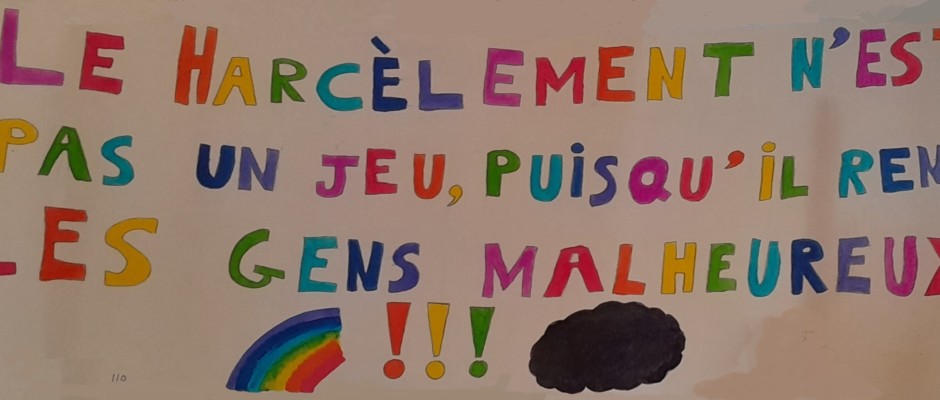 LE HARCÈLEMENT N'EST
PAS UN JEU, PUISQU'IL REN
LES GENS MALHEUREUX
!!!
110